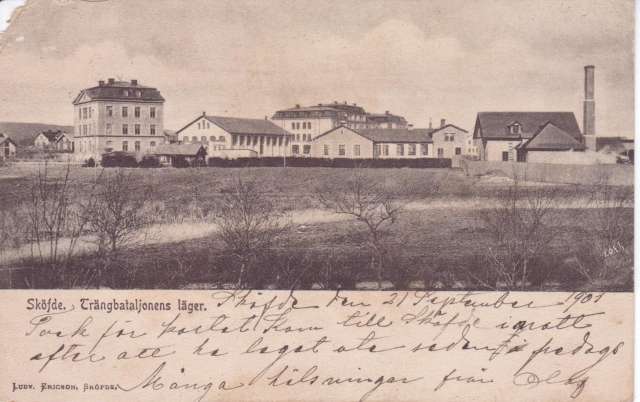 Sköfde. Trängbataljonens läger.
Sköfde den 21 September 1901
Tack för kortet kom till Sköfde igott
efter att ha legat ute sedan fredags
Många hälsningar från Olof
LUDV. ERICSON, SKÖFDE.